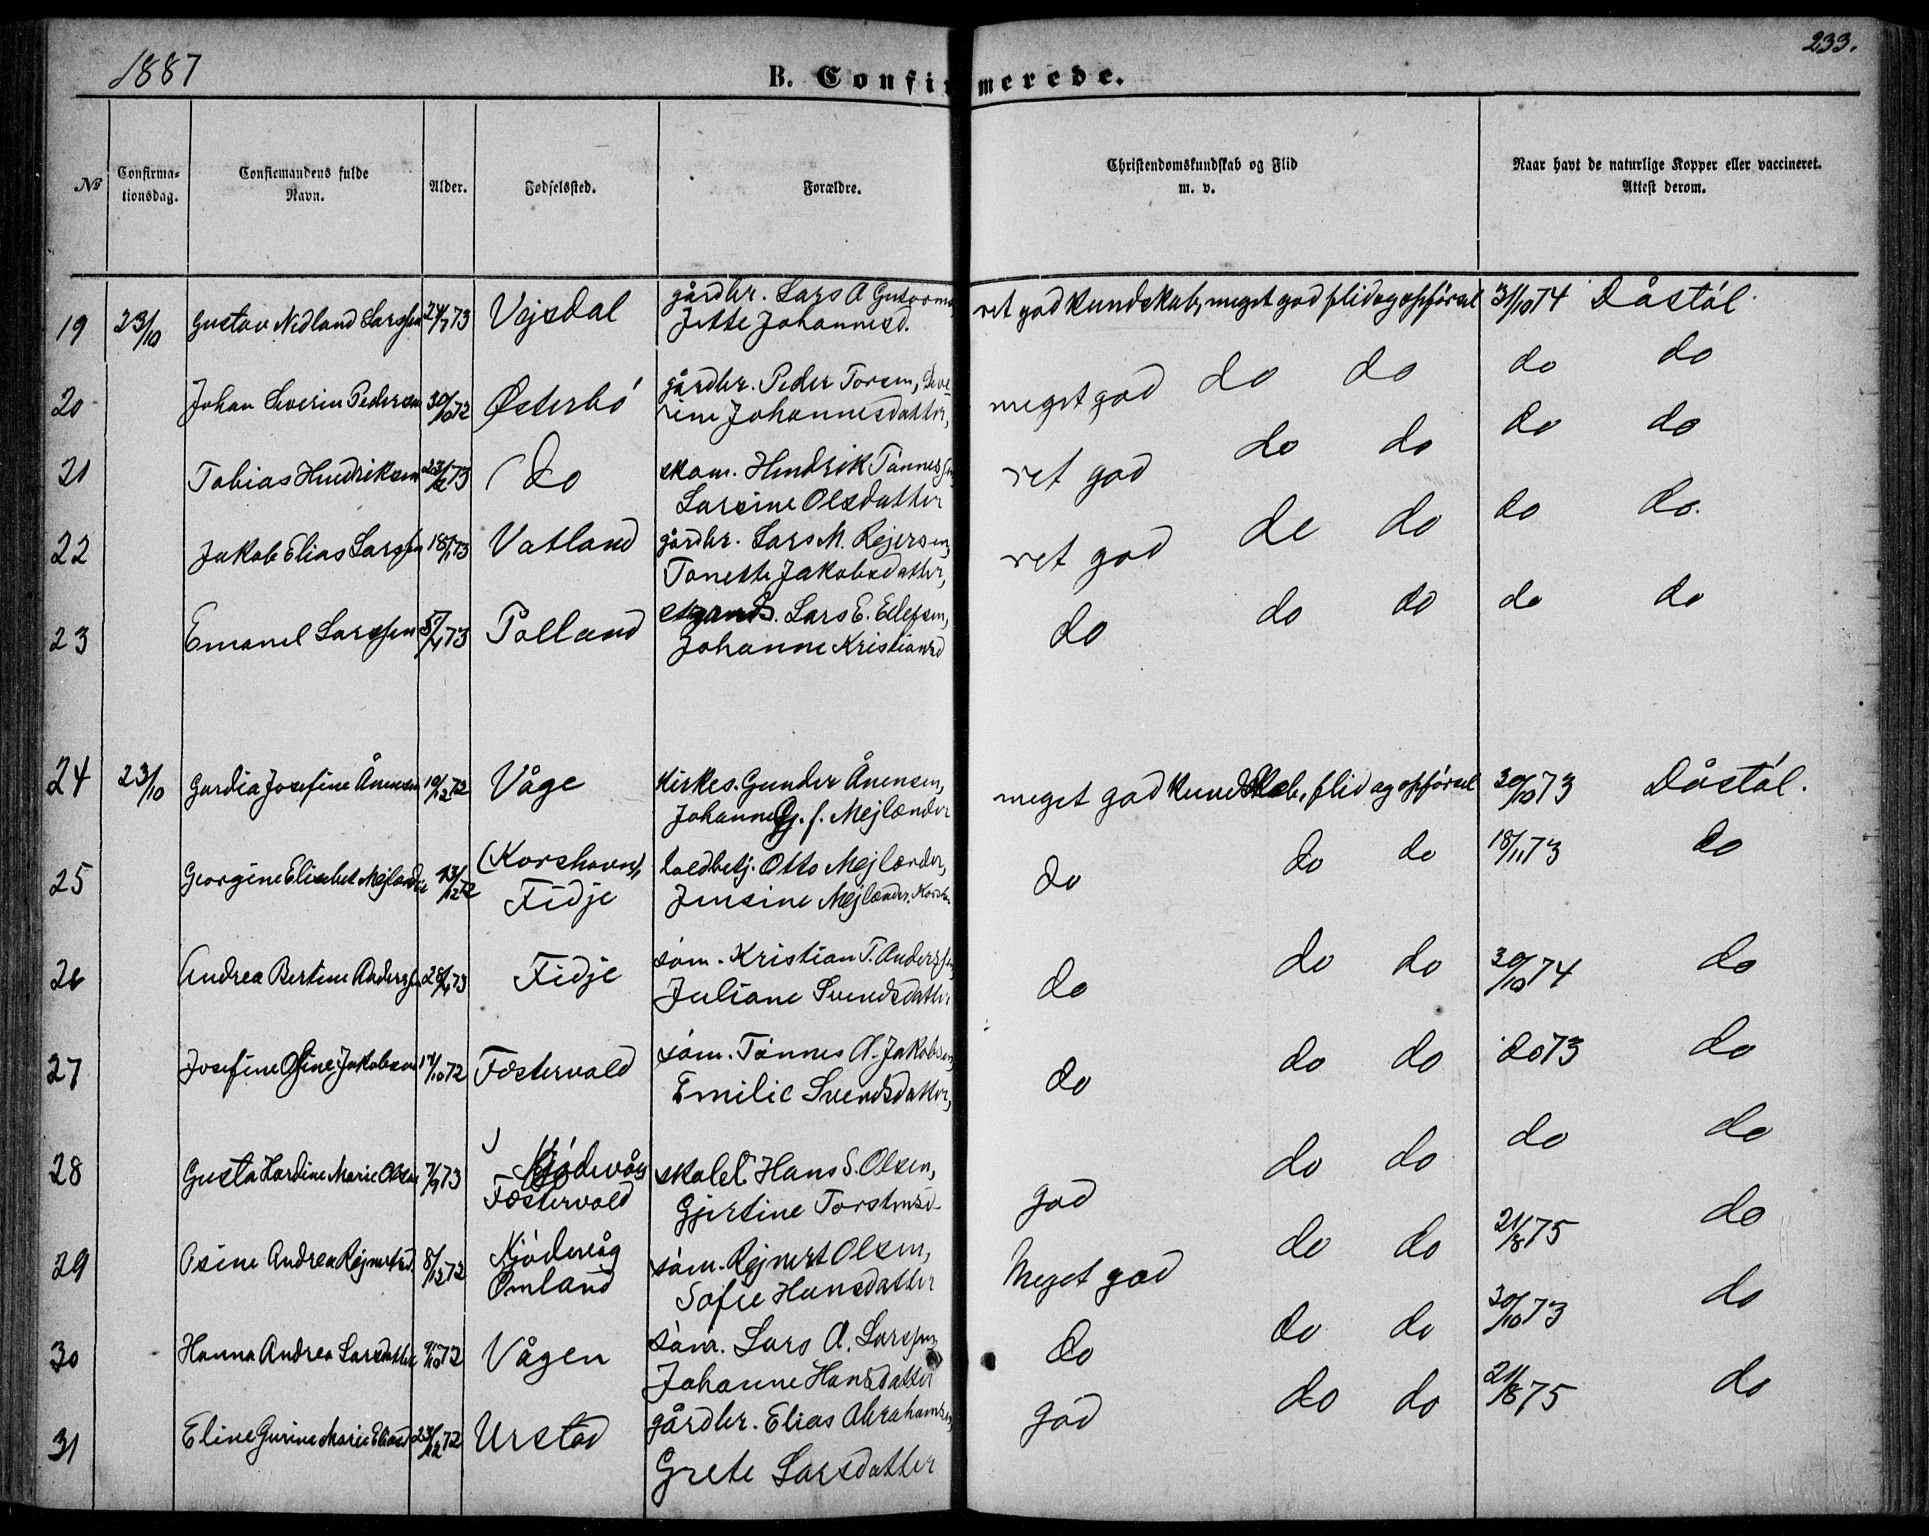 1887
233.
B. Confirmerede.
№
Confirma-
tionsdag.
Confirmandens fulde
Navn.
Alder.
Fødselssted.
Forældre.
Christendomskundskab og Flid
m. v.
Naar havt de naturlige Kopper eller vaccineret.
Attest derom.
19 23/10 Gustav Nedland Larssen 73 Vejsdal gårdbr. Lars A
Jette Johannesd.
ret god kundskab, meget god flid og opførsel 31/10 74 Dåstøl.
20 Johan Severin Pedersen 30/10 72 Østerbø gårdbr. Peder Torsen, Seve-
rine Johannesdatter,
meget god do do do do
21 Tobias Hendriksen 23/2 73 do skom. Hendrik Tønnessen
Larsine Olsdatter
ret god do do do do
22 Jakob Elias Larssen 18/1 73 Vatland gårdbr. Lars M. Rejersen,
Tonette Jakobsdatter,
ret god do do do do.
23 Emanel Larssen 73 Polland Lars E. Ellefsen,
Johanne Kristiansd
do do do do do
24 23/10 Gurdia Josefine Ånensen 10/12 72 Våge kirkes. Gunder Ånensen,
Johanne G. f. Mejlænder
meget god kundskab, flid og opførsel 30/10 73 Dåstøl.
25 Georgine Elisabet Mejlænder 23/12 72 (Korshavn),
Fidje
toldbetj. Otto Mejlænder,
Jensine Mejlænder.
do do do 18/11 73 do
26 Andrea Bertine Anderssen 28/4 73 Fidje søm. Kristian T. Anderssen
Juliane Svendsdatter
do do do 30/10 74 do
27 Josefine Jakobsen 17/10 72 Føstervold søm. Tønnes A. Jakobsen,
Emilie Svendsdatter,
do do do do 73 do
28 Gusta Hardine Marie Olsen 7/7 73 Kjødevåg
Føstervold
skolel. Hans S. Olsen,
Gjertine Torstensd
god do do do do
29 Osine Andrea Rejnertsd. 8/12 72 Kjødevåg
Omland
søm. Rejnert Olsen,
Sofie Hansdatter
Meget god do do 21/8 75 do
30 Hanna Andrea Larsdatter 9/10 72 Vågen søm. Lars A. Larssen,
Johanne Hansdatter
do do do 30/10 73 do
31 Eline Gurine Marie Eliasd 23/12 72 Urstad gårdbr. Elias Abrahamsen
Grete Larsdatter
god do do 21/8 75 do